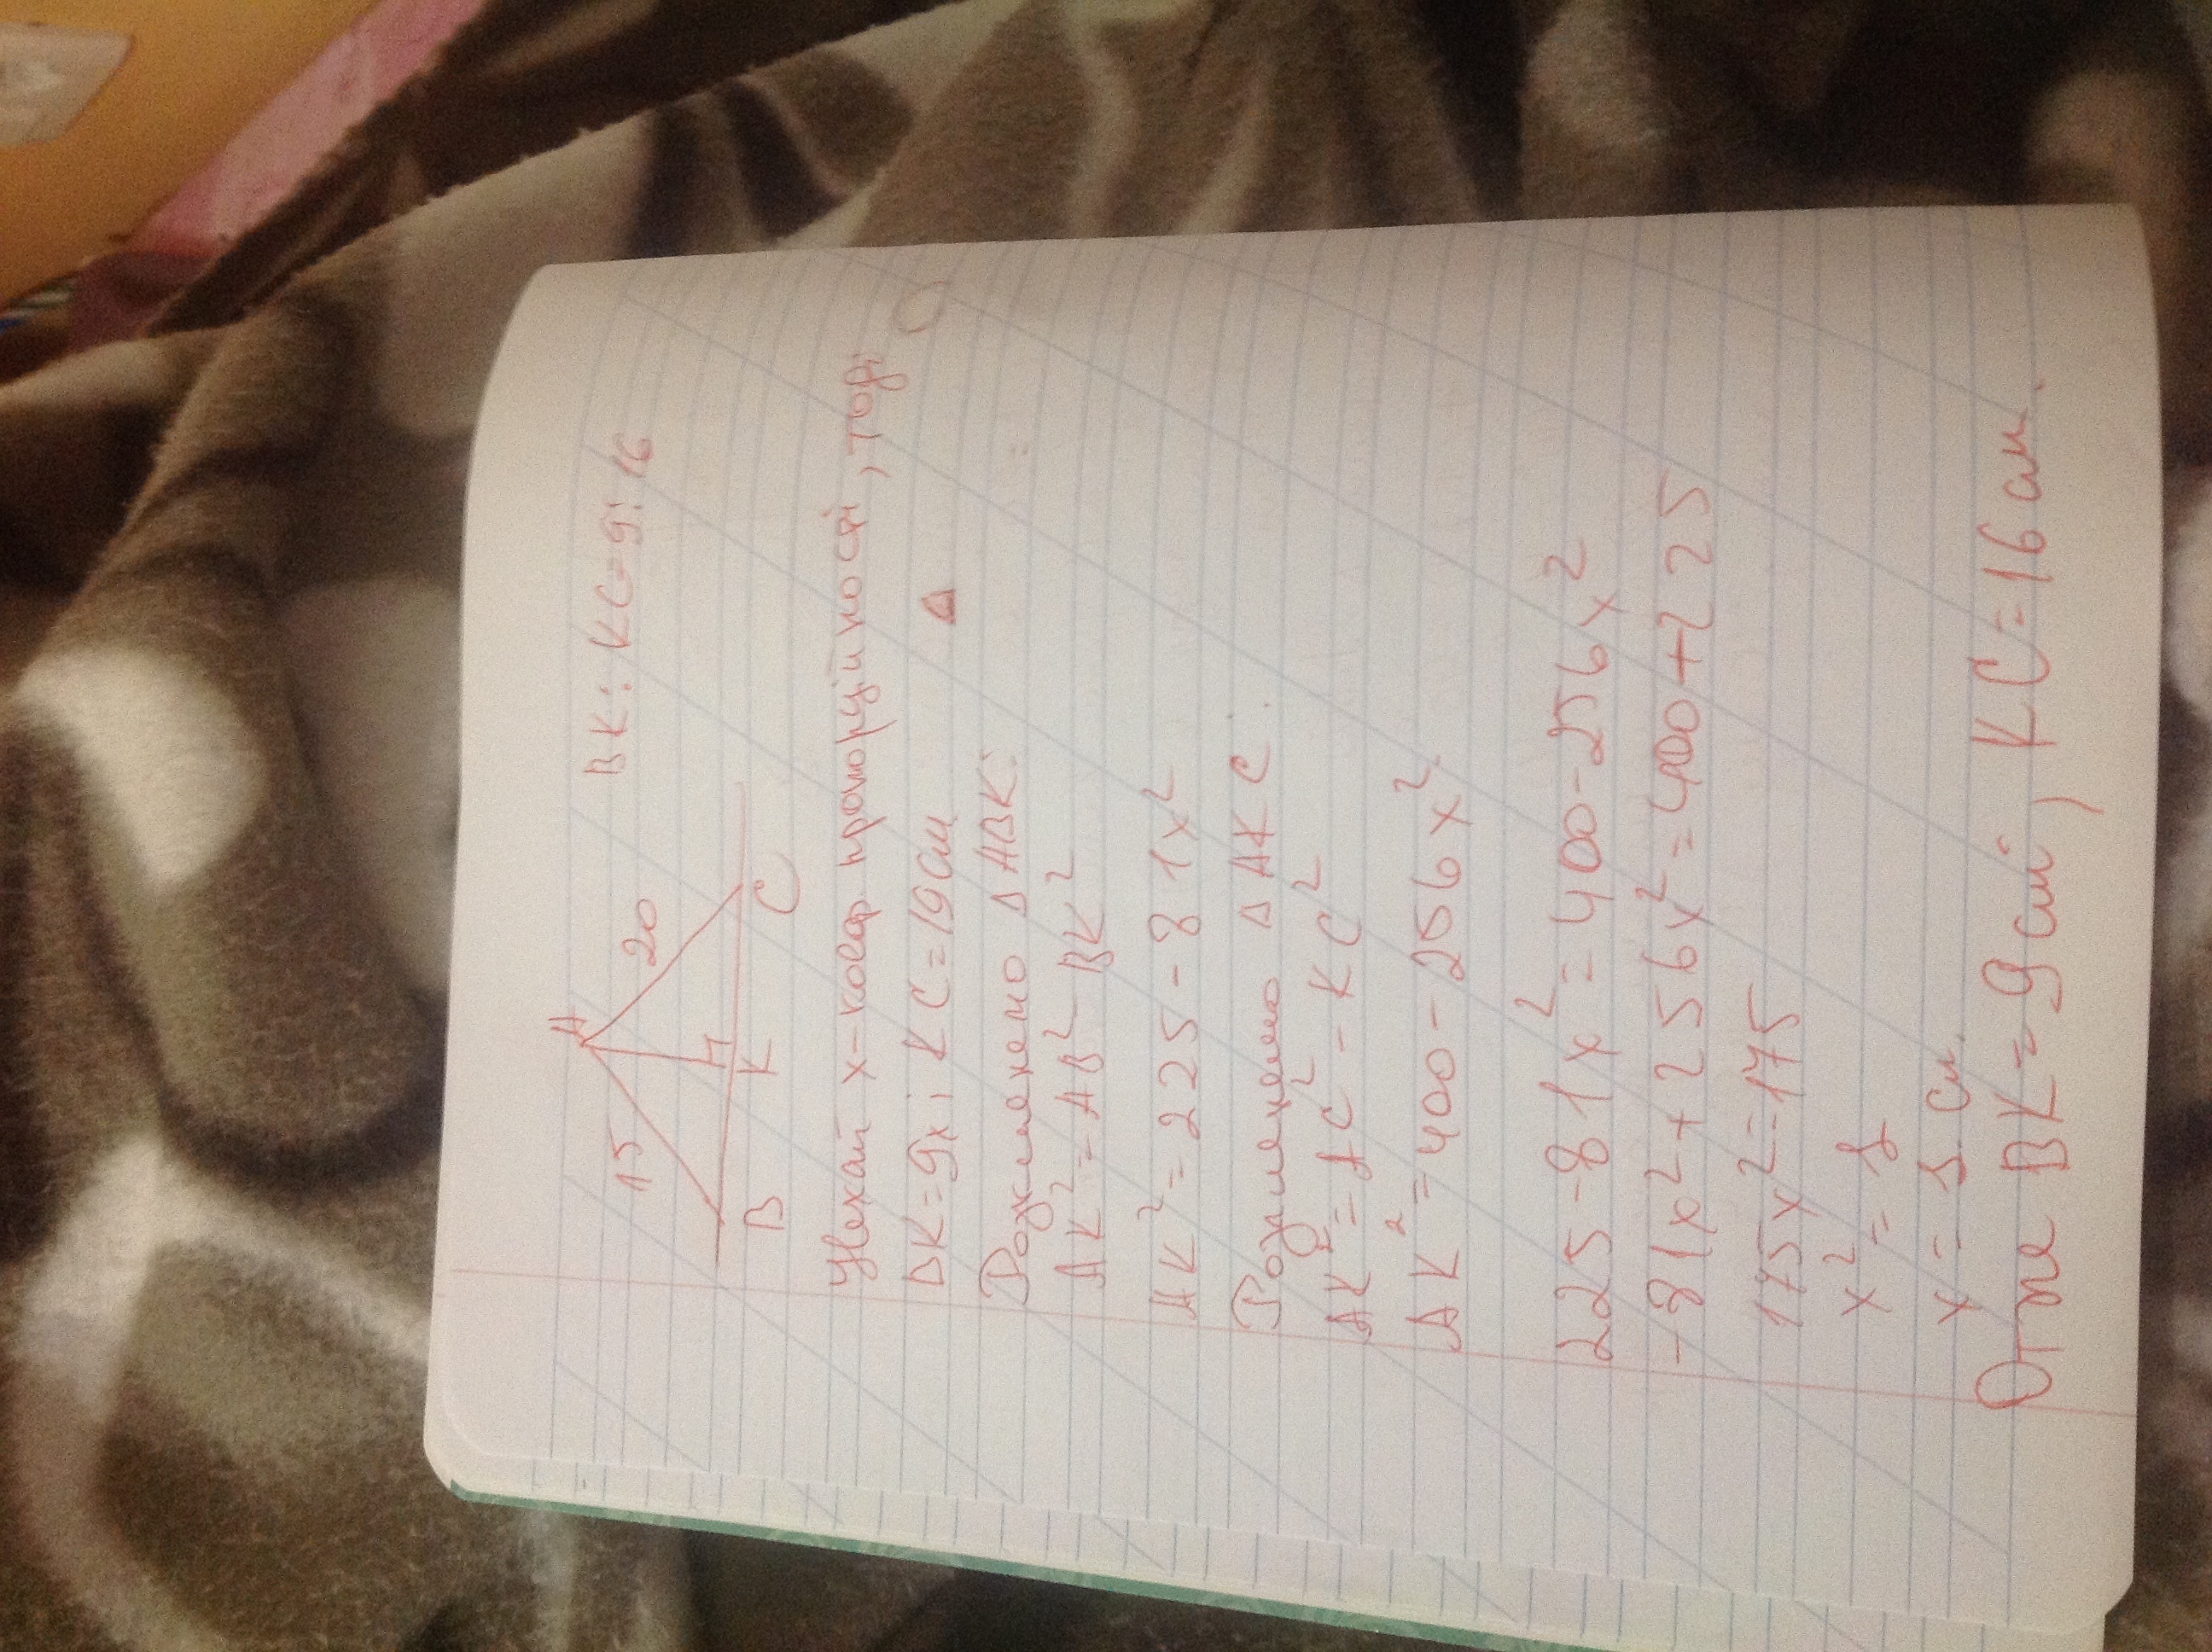 A
15
20
B K C
BK : KC = 9 : 16
Нехай х - коеф пропорційності, тоді
BK = 9x і KC = 190см
Розглянемо Δ ABK:
AK² = AB² - BK²
AK² = 225 - 81x²
Розглянемо Δ AKC:
AK² = AC² - KC²
AK² = 400 - 256x²
225 - 81x² = 400 - 256x²
- 81x² + 256x² = 400 + 225
175x² = 175
x² = 1
x = 1 см.
Отже BK = 9 см, KC = 16 см.